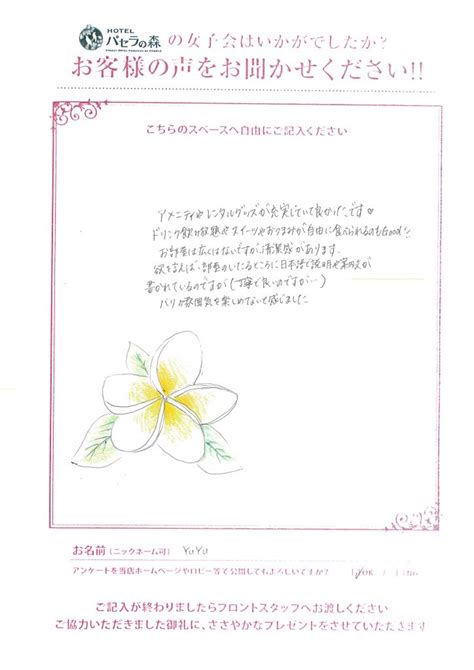 HOTEL
パセラの森 の女子会はいかがでしたか?
お客様の声をお聞かせください!!
こちらのスペースへ自由にご記入ください
アメニティやレンタルグッズが充実していて良かったです♡
ドリンク飲み放題やスイーツやおつまみが自由に食べられるのもGood!!
お部屋は広くはないですが、清潔感があります。
欲を言えば、部屋のいたるところに日本語で説明や案内が
書かれているのですが(丁寧で良いのですが…)
バリの雰囲気を楽しめないで感じました
お名前(ニックネーム可) YuYu
アンケートを当店ホームページやロビー等で公開してもよろしいですか? OK / NG
ご記入が終わりましたらフロントスタッフへお渡しください
ご協力いただきました御礼に、ささやかなプレゼントをさせていただきます